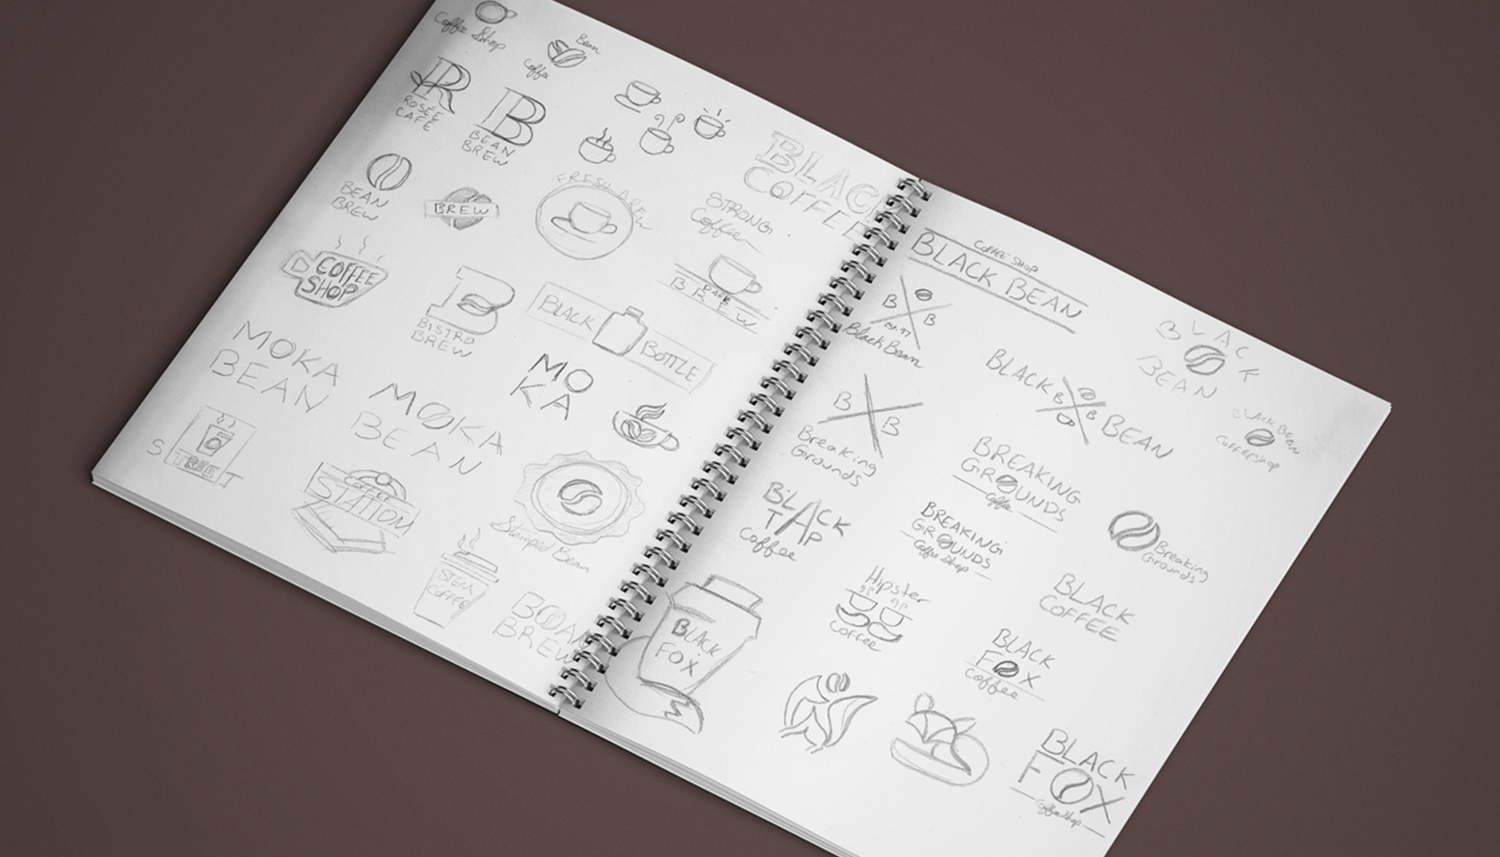 Coffee Shop
Bean
Coffee
R
ROSÉE
CAFÉ
B
BEAN
BREW
BEAN
BREW
BREW
FRESH BREW
BLACK
COFFEE
STRONG
Coffee
COFFEE
SHOP
B
BISTRO
BREW
BREW
BLACK
BOTTLE
MOKA
BEAN
MOKA
BEAN
MO
KA
STREET
STATION
Stamped Bean
COFFEE
BREW
COFFEE SHOP
BLACK BEAN
B
B
Black Bean
BLACK
B B
BEAN
BLACK
BEAN
BLACK BEAN
Coffeeshop
B
B
Breaking
Grounds
BREAKING
GROUNDS
Coffee
BLACK
TAP
Coffee
BREAKING
GROUNDS
Coffee Shop
Breaking
Grounds
Hipster
Coffee
BLACK
COFFEE
BLACK
FOX
BLACK
FOX
Coffee
BLACK
FOX
Coffeeshop